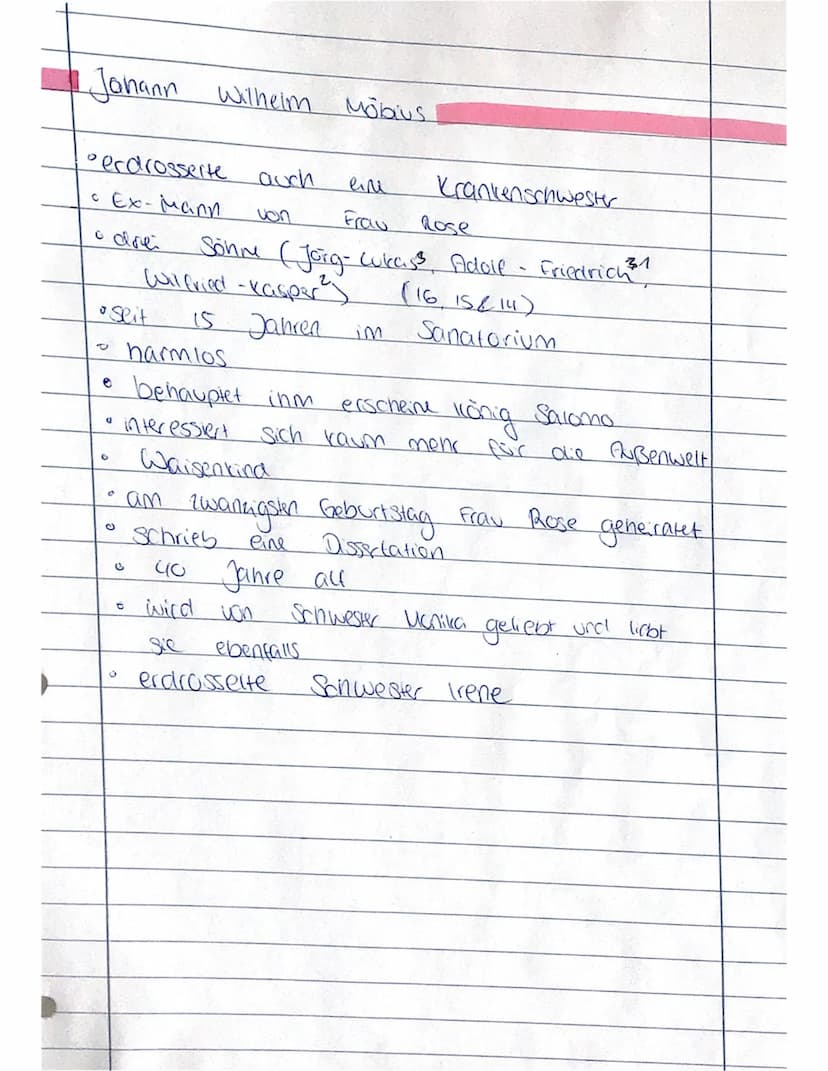 Johann Wilhelm Möbius
° erdrosselte auch eine Krankenschwester
° Ex-Mann von Frau Rose
° drei Söhne (Jörg-Lukas³, Adolf-Friedrich¹,
Wilfried-Kasper²) (16, 15 & 14)
° seit 15 Jahren im Sanatorium
° harmlos
° behauptet ihm erscheine König Salomo
° interessiert sich kaum mehr für die Außenwelt
° Waisenkind
° am zwanzigsten Geburtstag Frau Rose geheiratet
° schrieb eine Dissertation
° 40 Jahre alt
° wird von Schwester Monika geliebt und liebt
sie ebenfalls
° erdrosselte Schwester Irene